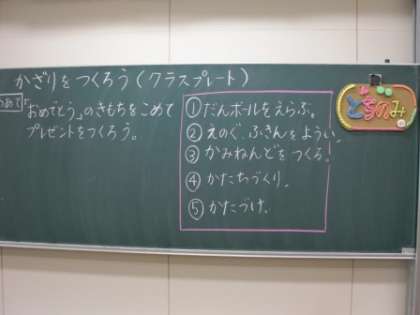 かざりをつくろう(クラスプレート)
めあて
「おめでとう」のきもちをこめて
プレゼントをつくろう。
①だんボールをえらぶ。
②えのぐ、ふきんをようい。
③かみねんどをつくる。
④かたちづくり。
⑤かたづけ。
とちのみ